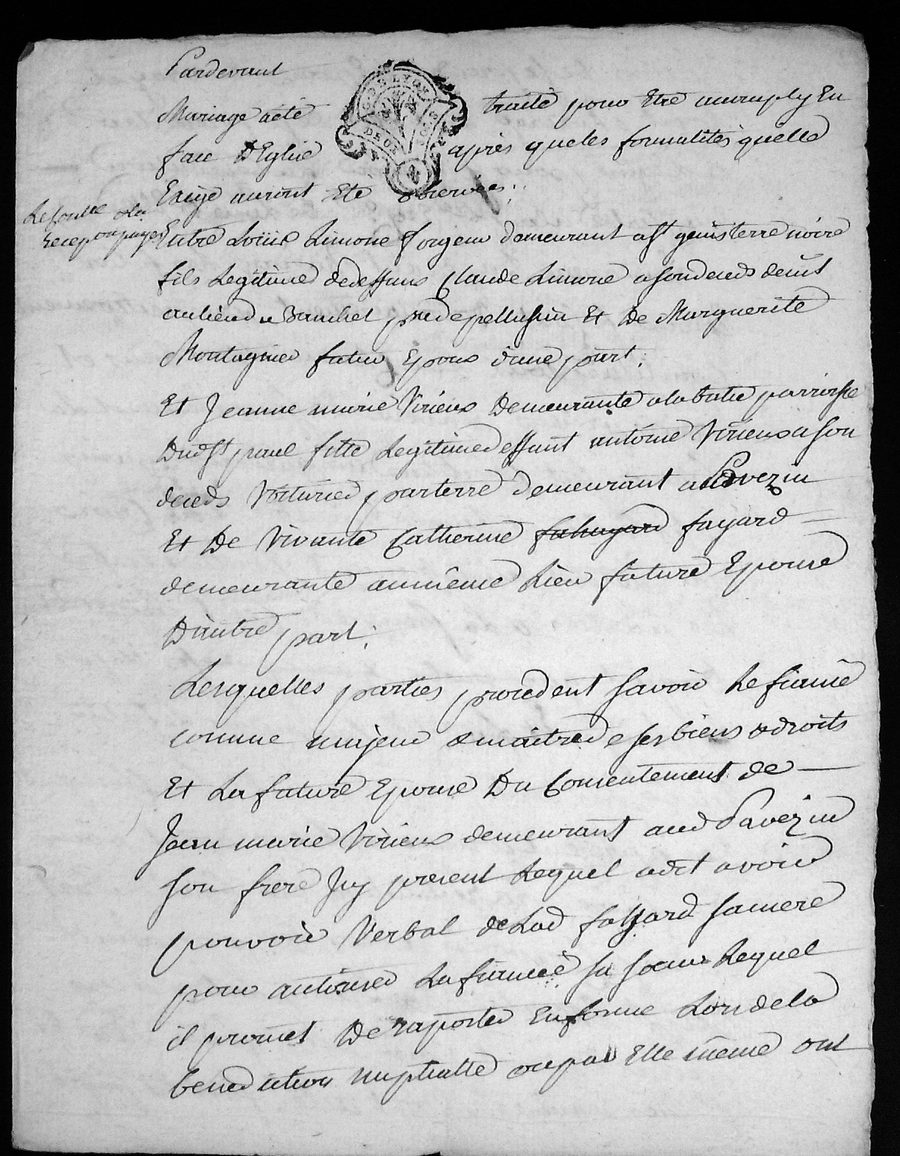 Pardevant
Mariage a été traité pour Etre accomply En
face D'Eglise après queles formalités quelle
Exige auront Eté observées;
Le soulle ou payer
Entre Louis Limone forgeur demeurant a st genis terre noire
fils Legitime de deffunt Claude Limone a son deceds
au lieu de prde pellussin Et De Marguerite
Montagnier futur Epoux d'une part;
Et Jeanne marie Virieux Demeurante a la batie parroisse
Dud st paul fille Legitime deffunt antoine Virieux a son
deceds Voiturier par terre demeurant a Pavezin
Et De Vivante Catherine fayard
demeurante au même Lieu future Epouse
D'autre part;
Lesquelles parties procedent savoir Le fiancé
comme majeur & maitre de ses biens & droits
Et La future Epouse Du Consentement de
Jean marie Virieux demeurant aud Pavezin
son frere Icy present Lequel a dit avoir
pouvoir Verbal de Lad fayard sa mere
pour autoriser La fiancée sa soeur Lequel
il promet De raporter En forme Lors de la
benediction nuptialle ou par Elle même ont
GEN DE LYON
DEUX SOLS